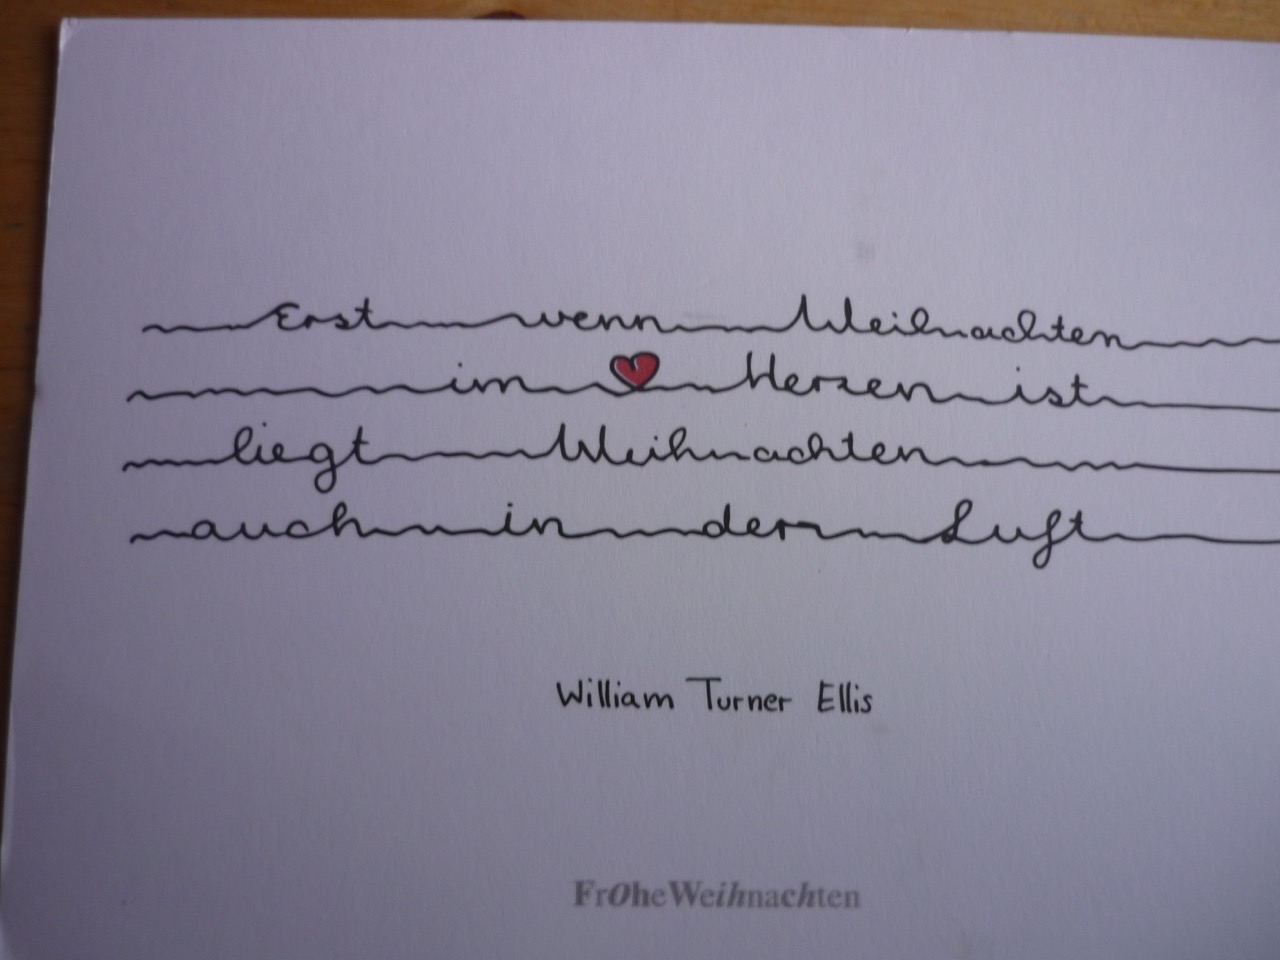 Erst wenn Weihnachten
im Herzen ist
liegt Weihnachten
auch in der Luft
William Turner Ellis
FrOheWeihnachten